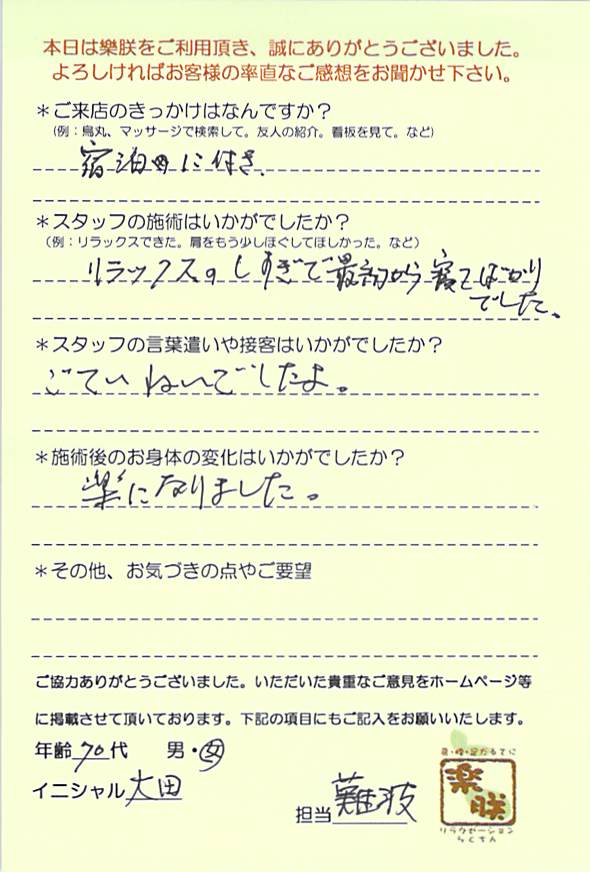 本日は樂朕をご利用頂き、誠にありがとうございました。
よろしければお客様の率直なご感想をお聞かせ下さい。
＊ご来店のきっかけはなんですか？
（例：烏丸、マッサージで検索して。友人の紹介。看板を見て。など）
宿泊日に付き、
＊スタッフの施術はいかがでしたか？
（例：リラックスできた。肩をもう少しほぐしてほしかった。など）
リラックスのしすぎで最初から寝てばかり
でした。
＊スタッフの言葉遣いや接客はいかがでしたか？
ごていねいでしたよ。
＊施術後のお身体の変化はいかがでしたか？
楽になりました。
＊その他、お気づきの点やご要望
ご協力ありがとうございました。いただいた貴重なご意見をホームページ等
に掲載させて頂いております。下記の項目にもご記入をお願いいたします。
年齢 70代 男・女
イニシャル 太田
担当 難波
楽朕
リラクゼーション
らくちん